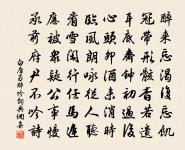 醉來忘渴復忘飢
冠帶形骸杳若遺
耳底齋鐘初過後
心頭卯酒未消時
臨風朗詠從人聽
看雪閑行任馬遲
應被衆疑公事慢
承前府尹不吟詩
白居易醉吟詞典網